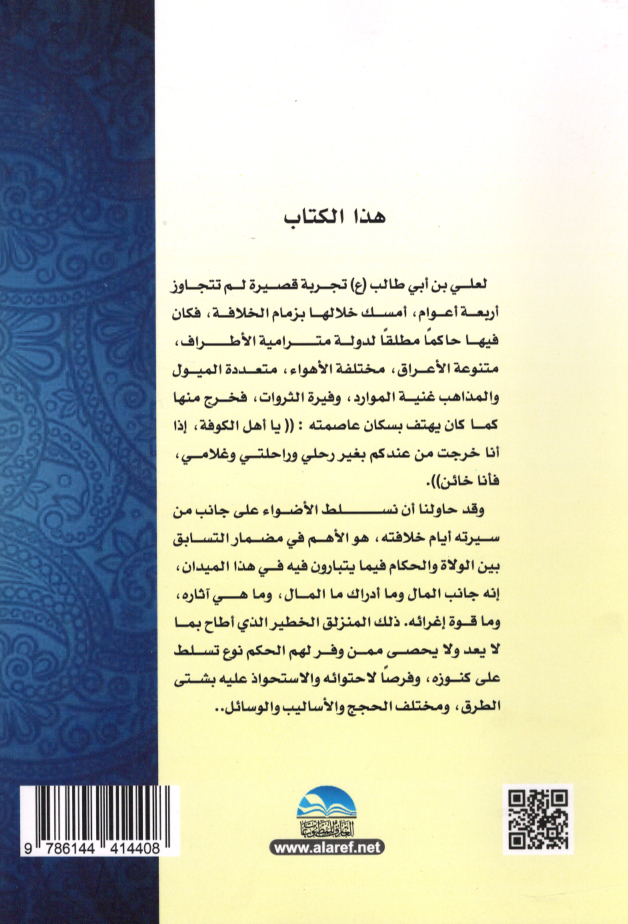 هذا الكتاب
لعلي بن أبي طالب (ع) تجربة قصيرة لم تتجاوز
أربعة أعوام، أمسك خلالها بزمام الخلافة، فكان
فيها حاكماً مطلقاً لدولة مترامية الأطراف،
متنوعة الأعراق، مختلفة الأهواء، متعددة الميول
والمذاهب غنية الموارد، وفيرة الثروات، فخرج منها
كما كان يهتف بسكان عاصمته : (( يا أهل الكوفة، إذا
أنا خرجت من عندكم بغير رحلي وراحلتي وغلامي،
فأنا خائن)).
وقد حاولنا أن نسلط الأضواء على جانب من
سيرته أيام خلافته، هو الأهم في مضمار التسابق
بين الولاة والحكام فيما يتبارون فيه في هذا الميدان،
إنه جانب المال وما أدراك ما المال، وما هي آثاره،
وما قوة إغرائه. ذلك المنزلق الخطير الذي أطاح بما
لا يعد ولا يحصى ممن وفر لهم الحكم نوع تسلط
على كنوزه، وفرصاً لاحتوائه والاستحواذ عليه بشتى
الطرق، ومختلف الحجج والأساليب والوسائل..
www.alaref.net
9 786144 414408